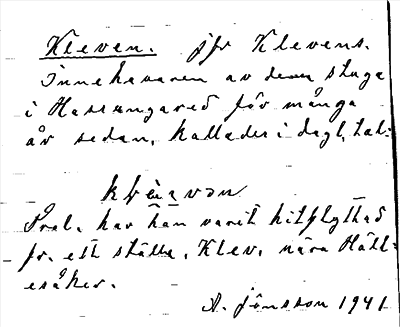 Kleven. jfr Klevens.
Innehavaren av denna stuga
i Hassungared för många
år sedan, kallades i dagl. tal:
Trol. har han varit hitflyttad
fr. ett ställe, Klev, nära Häll-
esåker.
A. Jönsson 1941